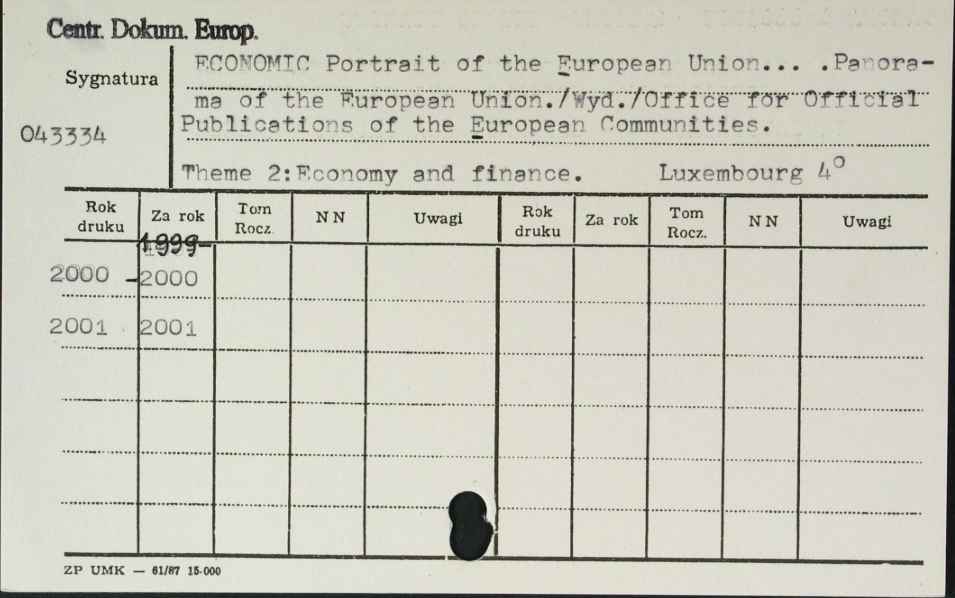 Centr. Dokum. Europ.
Sygnatura
043334
ECONOMIC Portrait of the European Union... .Panora-
ma of the European Union./Wyd./Office for Official
Publications of the European Communities.
Theme 2:Economy and finance. Luxembourg 4°
Rok druku Za rok Tom Rocz. NN Uwagi Rok druku Za rok Tom Rocz. NN Uwagi
1999-
2000 -2000
2001 2001
ZP UMK — 61/87 15·000